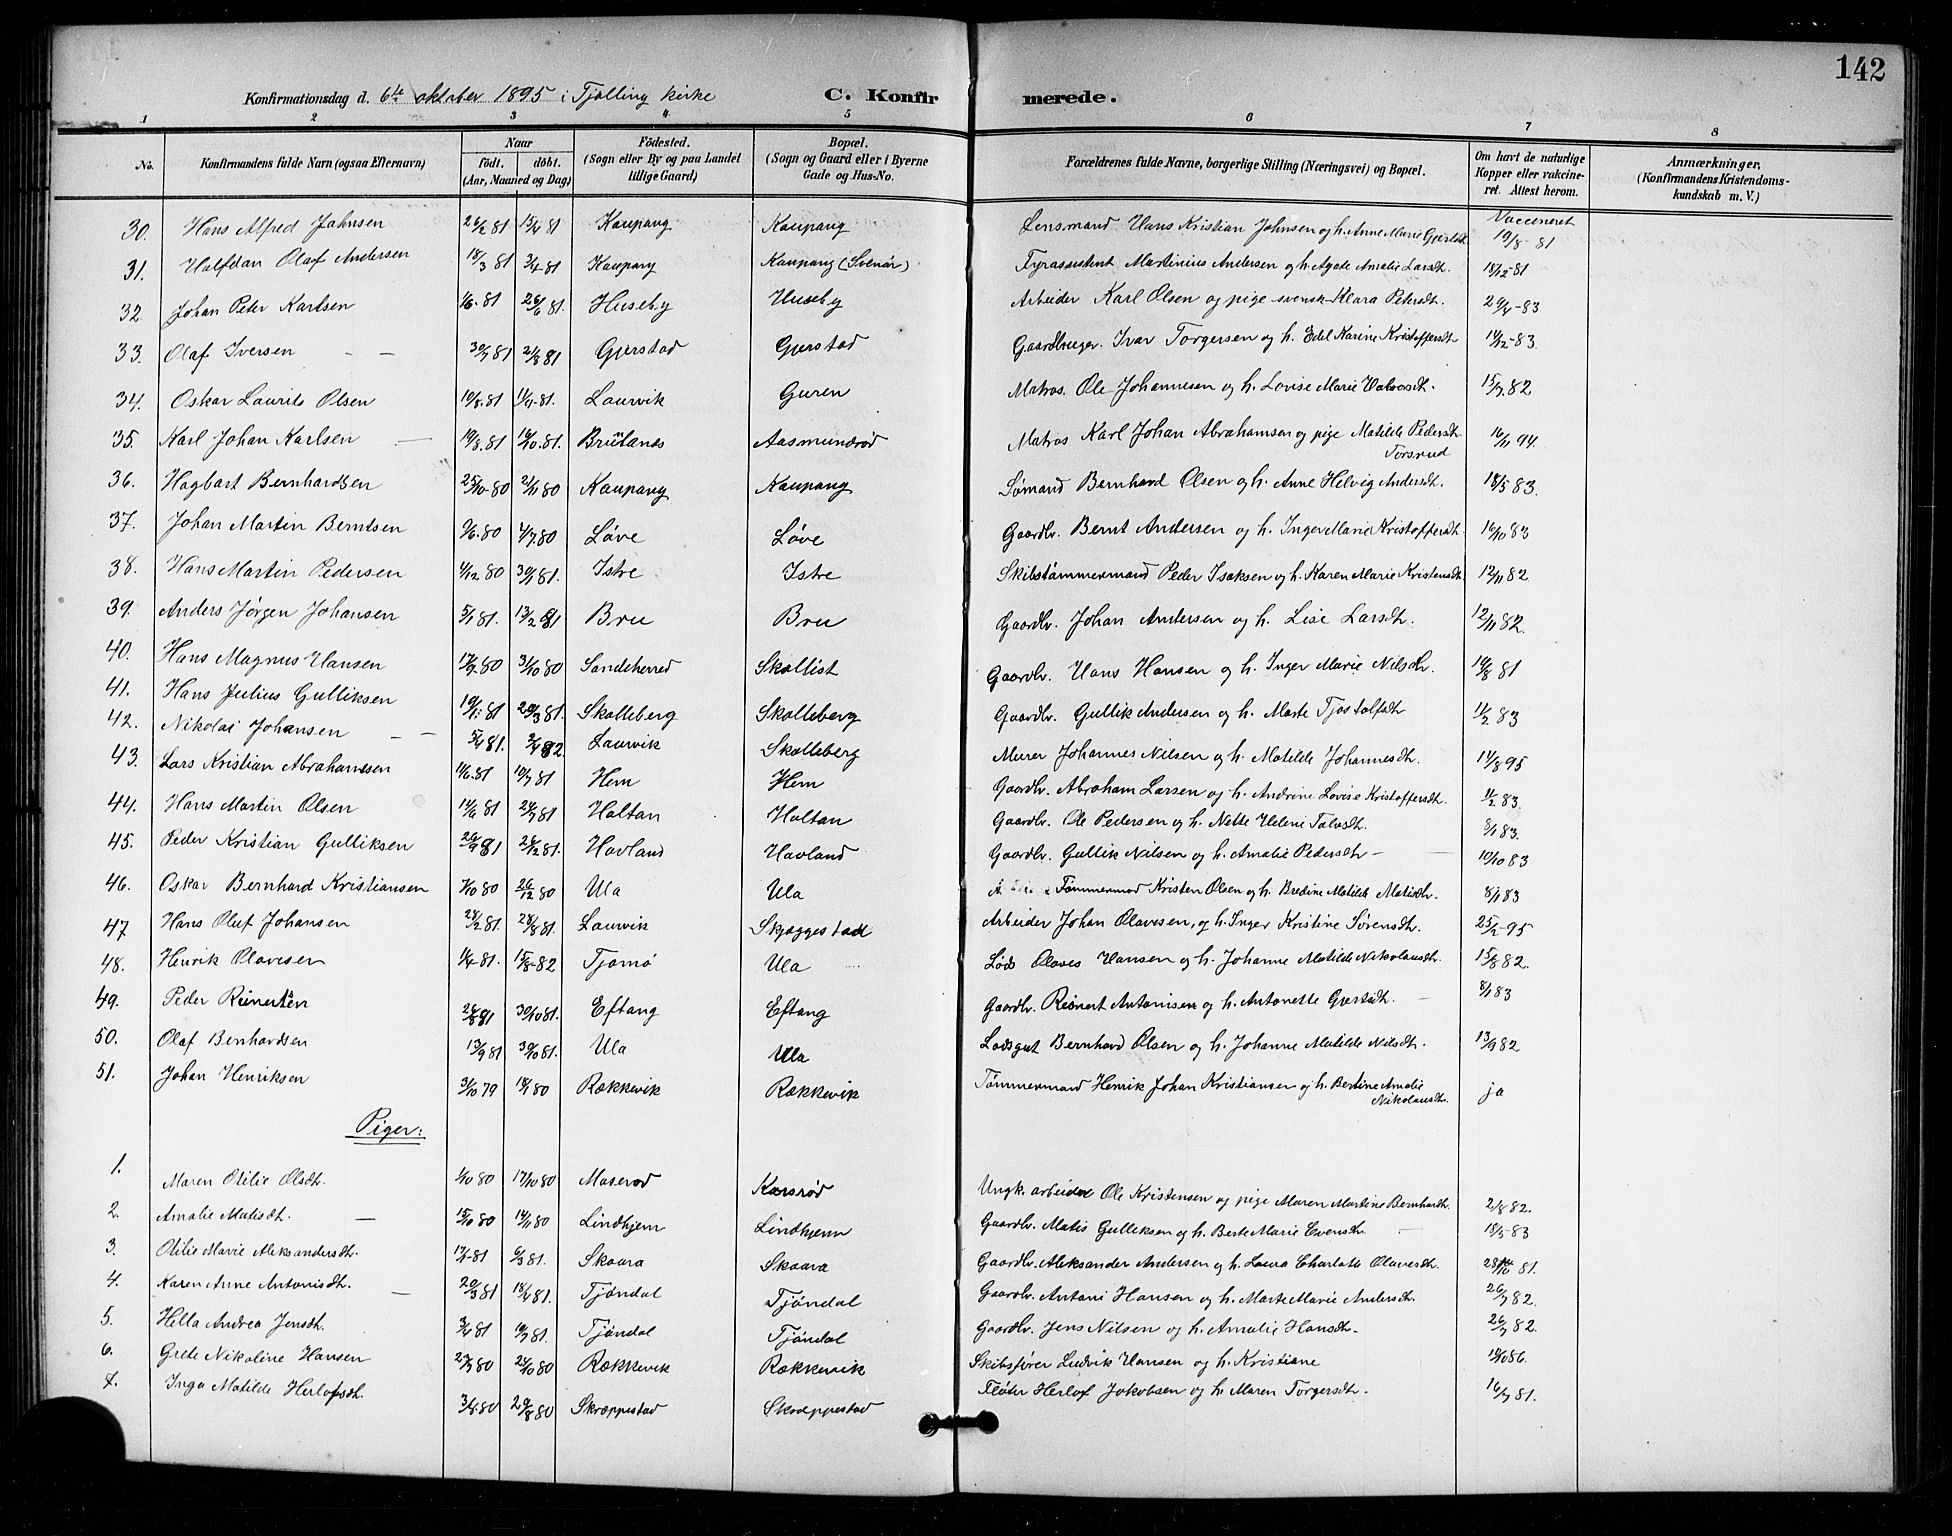 142
Konfirmationsdag d. 6te oktober 1895 i Tjølling kirke C. Konfirmerede.
1 2 3 4 5 6 7 8
No. Konfirmandens fulde Navn (ogsaa Efternavn) Naar födt. döbt. (Aar, Maaned og Dag) Födested. (Sogn eller By og paa Landet tillige Gaard) Bopæl. (Sogn og Gaard eller i Byerne Gade og Hus-No. Forældrenes fulde Navne, borgerlige Stilling (Næringsvei) og Bopæl. Om havt de naturlige Kopper eller vakcineret. Attest herom. Anmærkninger, (Konfirmandens Kristendomskundskab m. V.)
30. Hans Alfred Johnsen 26/2 81 15/4 81 Kaupang Kaupang Lensmand Hans Kristian Johnsen og h. Anne Marie Gjertsdt. Vaccineret 19/8-81
31. Halfdan Olaf Andersen 18/3 81 3/4-81 Kaupang Kaupang (Svenør) Fyrassistent Martinius Andersen og h. Agate Amalie Larsdt. 18/12-81
32 Johan Peter Karlsen 1/6-81 26/6 81. Huseby Huseby Arbeider Karl Olsen og pige svensk Klara Petersdt. 29/4-83
33. Olaf Iversen — — 30/7 81 21/8 81 Gjerstad Gjerstad Gaardbruger. Ivar Torgersen og h. Edel Karine Kristoffersdt 14/12-83.
34. Oskar Laurits Olsen 10/8.81 11/9-81. Laurvik Guren Matros. Ole Johannesen og h. Lovise Marie Halvorsdt. 15/7.82
35. Karl Johan Karlsen — 19/8.81 16/10.81. Brutanes Aasmundrød Matros Karl Johan Abrahamsen og pige Matilde Pedersdt. Torsrud 16/11 94.
36. Hagbart Bernhardsen 25/10-80 21/11 80 Kaupang Kaupang Sømand Bernhard Olsen og h. Anne Helvig Andersdt. 18/5 83.
37. Johan Martin Berntsen 9/6.80 4/7.80 Løve Løve Gaardbr. Bernt Andersen og h. Inger Marie Kristoffersdt 16/10 83
38. Hans Martin Pedersen 4/12 80 30/1 81. Istre Istre Skibstømmermand Peder Isaksen og h. Karen Marie Kristensdt. 12/11 82.
39. Anders Jørgen Johansen 5/1 81. 13/2 81 Bru Bru Gaardbr. Johan Andersen og h. Lise Larsdt. 12/11 82.
40. Hans Magnus Hansen 17/9.80 31/10 80 Sandeherred Skallist Gaardbr. Hans Hansen og h. Inger Marie Nilsdtr. 19/8 81
41. Hans Julius Gulliksen 19/1: 81 20/3 81. Skalleberg Skalleberg Gaardbr. Gullik Andersen og h. Marte Tjostolfsdt 11/2 83
42. Nikolai Johansen — — 5/4 81. 2/4 82. Laurvik Skalleberg Murer Johannes Nilsen og h. Matilde Johannesdt. 14/8 95
43. Lars Kristian Abrahamsen 11/6.81 10/7 81 Hem Hem Gaardbr. Abraham Larsen og h. Andrine Lovise Kristoffersdt. 11/2 83.
44. Hans Martin Olsen 14/6 81 24/7 81 Holtan Holtan Gaardbr. Ole Pedersen og h. Nette Helene Talvsdt. 8/1 83.
45. Peder Kristian Gulliksen 26/9 81 26/12 81. Havland Havland Gaardbr. Gullik Nilsen og h. Amalie Pedersdtr — — 10/10 83
46. Oskar Bernhard Kristiansen 7/10 80 26/12 80 Ula Ula Tømmermand Kristen Olsen og h. Bredine Matilde Matisdt. 8/1 83
47 Hans Oluf Johansen 28/2 81. 28/8 81. Laurvik Skjæggestad Arbeider Johan Olavesen, og h. Inger Kristine Sørensdt. 25/2-95
48. Henrik Olavesen 1/4-81. 15/8-82 Tjømø Ula Løds Olaves Hansen og h. Johanne Matilde Nikolaisdt. 15/8 82.
49. Peder Reinertsen 26/8 81 30/10 81. Eftang Eftang Gaardbr. Reinert Antonisen og h. Antonette Gjertsdt. — 8/1 83
50. Olaf Bernhardsen 13/9 81 30/10 81. Ula Ula Lodsgut Bernhard Olsen og h. Johanne Matilde Nilsdt. 13/9 82
51. Johan Henriksen 31/10 79 18/1 80 Rækkevik Rækkevik Tømmermand Henrik Johan Kristiansen og h. Bertine Amalie Nikolaisdt. ja
Piger:
1. Maren Otilie Olsdt. 1/10 80 17/10 80 Maserød Karsrød Ungk. arbeider Ole Kristensen og pige Maren Martine Bernhardt. 21/8 82.
2. Amalie Matisdt. — 15/10 80 14/11 80 Lindhjem Lindhjem Gaardbr. Matis Gulliksen og h. Berte Marie Evensdt. — 18/5-83
3. Otilie Marie Aleksandersdt. 17/1-81 6/3 81. Skaara Skaara Gaardbr. Aleksander Andersen og h. Laura Charlotte Olavesdt. 28/10 81.
4. Karen Anne Antonisdt. — 20/3 81 18/4 81. Tjøndal Tjøndal Gaardbr. Antoni Hansen og h. Marte Marie Andersdt. 26/7 82.
5. Hella Andrea Jensdt. 3/4 81 10/7 81. Tjøndal Tjøndal Gaardbr. Jens Nilsen og h. Amalie Hansdt. 26/7 82.
6. Grete Nikoline Hansen 27/9 80 25/10 80 Rækkevik Rækkevik Skibsfører Ludvik Hansen og h. Kristiane 18/10 86.
7. Inga Matilde Herlofsdt. 3/8.80 29/8 80 Skræppestad Skræppestad Fløter Herlof Jakobsen og h. Maren Torgersdt. 16/7 81.